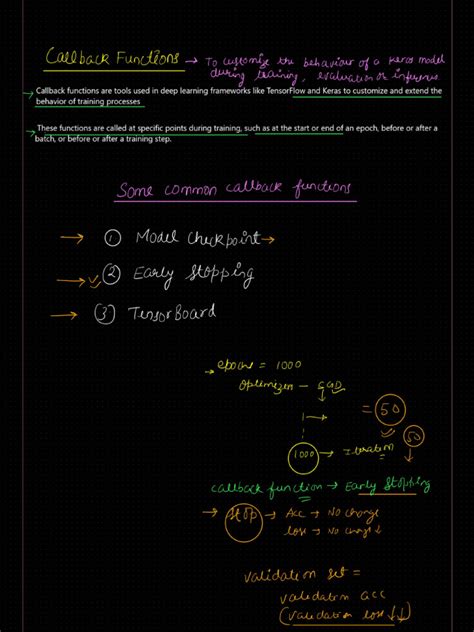 Callback Functions → To customize the behaviour of a Keras model
during training, evaluation or inference
→ Callback functions are tools used in deep learning frameworks like TensorFlow and Keras to customize and extend the
behavior of training processes
→ These functions are called at specific points during training, such as at the start or end of an epoch, before or after a
batch, or before or after a training step.
Some common callback functions
→ ① Model Checkpoint →
→ ✓ ② Early Stopping
→ ③ TensorBoard
→ epochs = 1000
optimizer –
1 → = 50
50
1000 → Iteration
callback function → Early Stopping
→ Stop → Acc → No change
loss → No change ↓
validation set =
validation acc
(validation loss ↓↓)